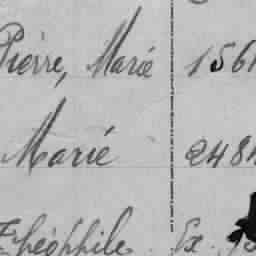 Pierre, Marié 156
Marié 248
Théophile Ex.